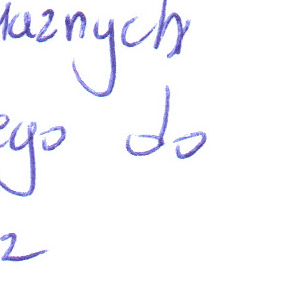 ważnych
ego do
z